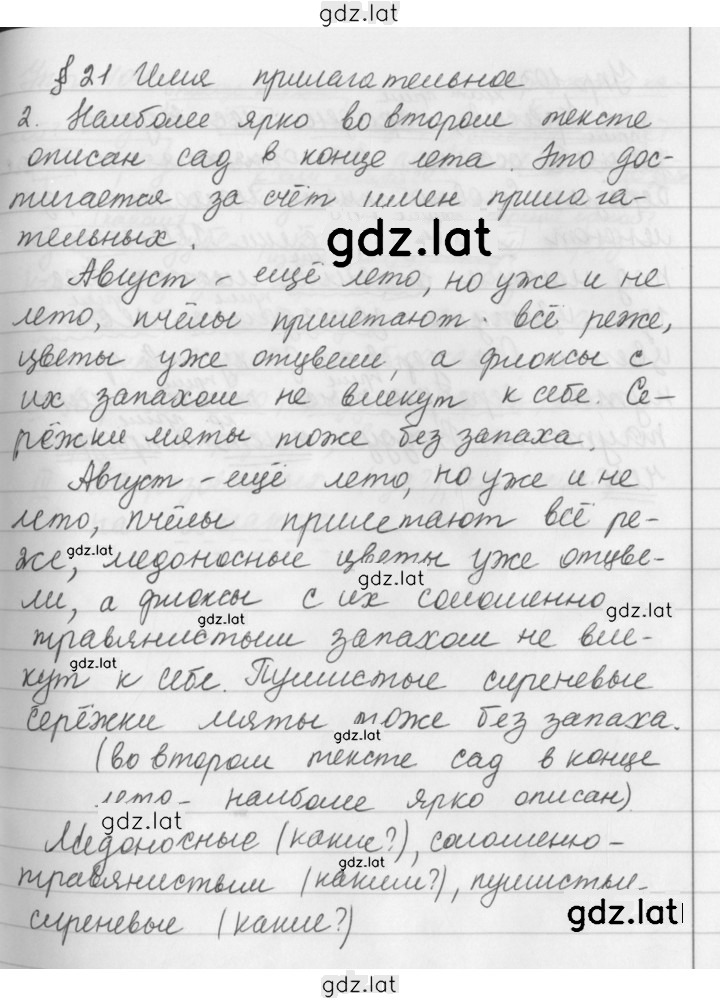 gdz.lat
§ 21 Имя прилагательное
2. Наиболее ярко во втором тексте
описан сад в конце лета. Это дос-
тигается за счёт имен прилага-
тельных.
gdz.lat
Август - ещё лето, но уже и не
лето, пчёлы прилетают всё реже,
цветы уже отцвели, а флоксы с
их запахом не влекут к себе. Се-
рёжки мяты тоже без запаха.
Август - ещё лето, но уже и не
лето, пчёлы прилетают всё ре-
же, медоносные цветы уже отцве-
gdz.lat
gdz.lat
ли, а флоксы с их соломенно
gdz.lat
gdz.lat
травянистым запахом не вле-
gdz.lat
кут к себе. Пушистые сиреневые
серёжки мяты тоже без запаха.
gdz.lat
(во втором тексте сад в конце
лето - наиболее ярко описан)
gdz.lat
Медоносные (какие?), соломенно-
gdz.lat
травянистым (каким?), пушистые-
сиреневые (какие?)
gdz.lat
gdz.lat